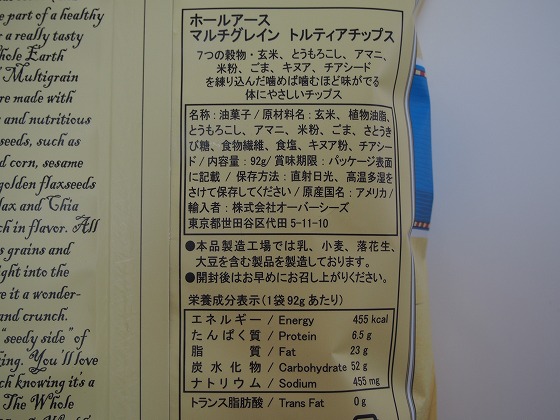 e part of a healthy
r a really tasty
hole Earth
Multigrain
re made with
and nutritious
seeds, such as
d corn, sesame
golden flaxseeds
lax and Chia
ch in flavor. All
s grains and
ight into the
e it a wonder-
and crunch.
"seedy side" of
ing. You'll love
ch knowing it's a
The Whole
ホールアース
マルチグレイン トルティアチップス
7つの穀物・玄米、とうもろこし、アマニ、
米粉、ごま、キヌア、チアシード
を練り込んだ噛めば噛むほど味がでる
体にやさしいチップス
名称:油菓子/原材料名:玄米、植物油脂、
とうもろこし、アマニ、米粉、ごま、さとうき
び糖、食物繊維、食塩、キヌア粉、チアシー
ド/内容量:92g/賞味期限:パッケージ表面
に記載 / 保存方法:直射日光、高温多湿を
さけて保存してください/原産国名:アメリカ/
輸入者:株式会社オーバーシーズ
東京都世田谷区代田 5-11-10
●本品製造工場では乳、小麦、落花生、
大豆を含む製品を製造しております。
●開封後はお早めにお召し上がりください。
栄養成分表示(1袋92gあたり)
エネルギー / Energy 455 kcal
たんぱく質 / Protein 6.5 g
脂 質 / Fat 23 g
炭水化物 / Carbohydrate 52 g
ナトリウム / Sodium 455 mg
トランス脂肪酸 / Trans Fat 0 g